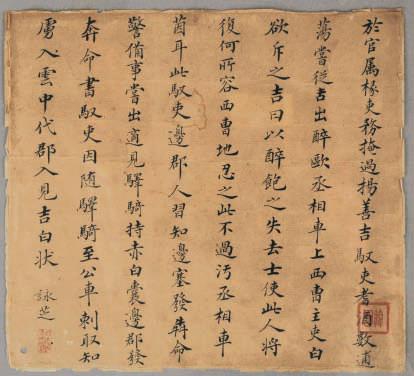 於官属掾吏務掩過揚善吉馭吏耆酒數逋
蕩嘗從吉出醉歐丞相車上西曹主吏白
欲斥之吉曰以醉飽之失去士使此人將
復何所容西曹地忍之此不過污丞相車
茵耳此馭吏邊郡人習知邊塞發犇命
警備事嘗出適見驛騎持赤白囊邊郡發
奔命書馭吏因随驛騎至公車刺取知
虜入雲中代郡入見吉白状 詠芝